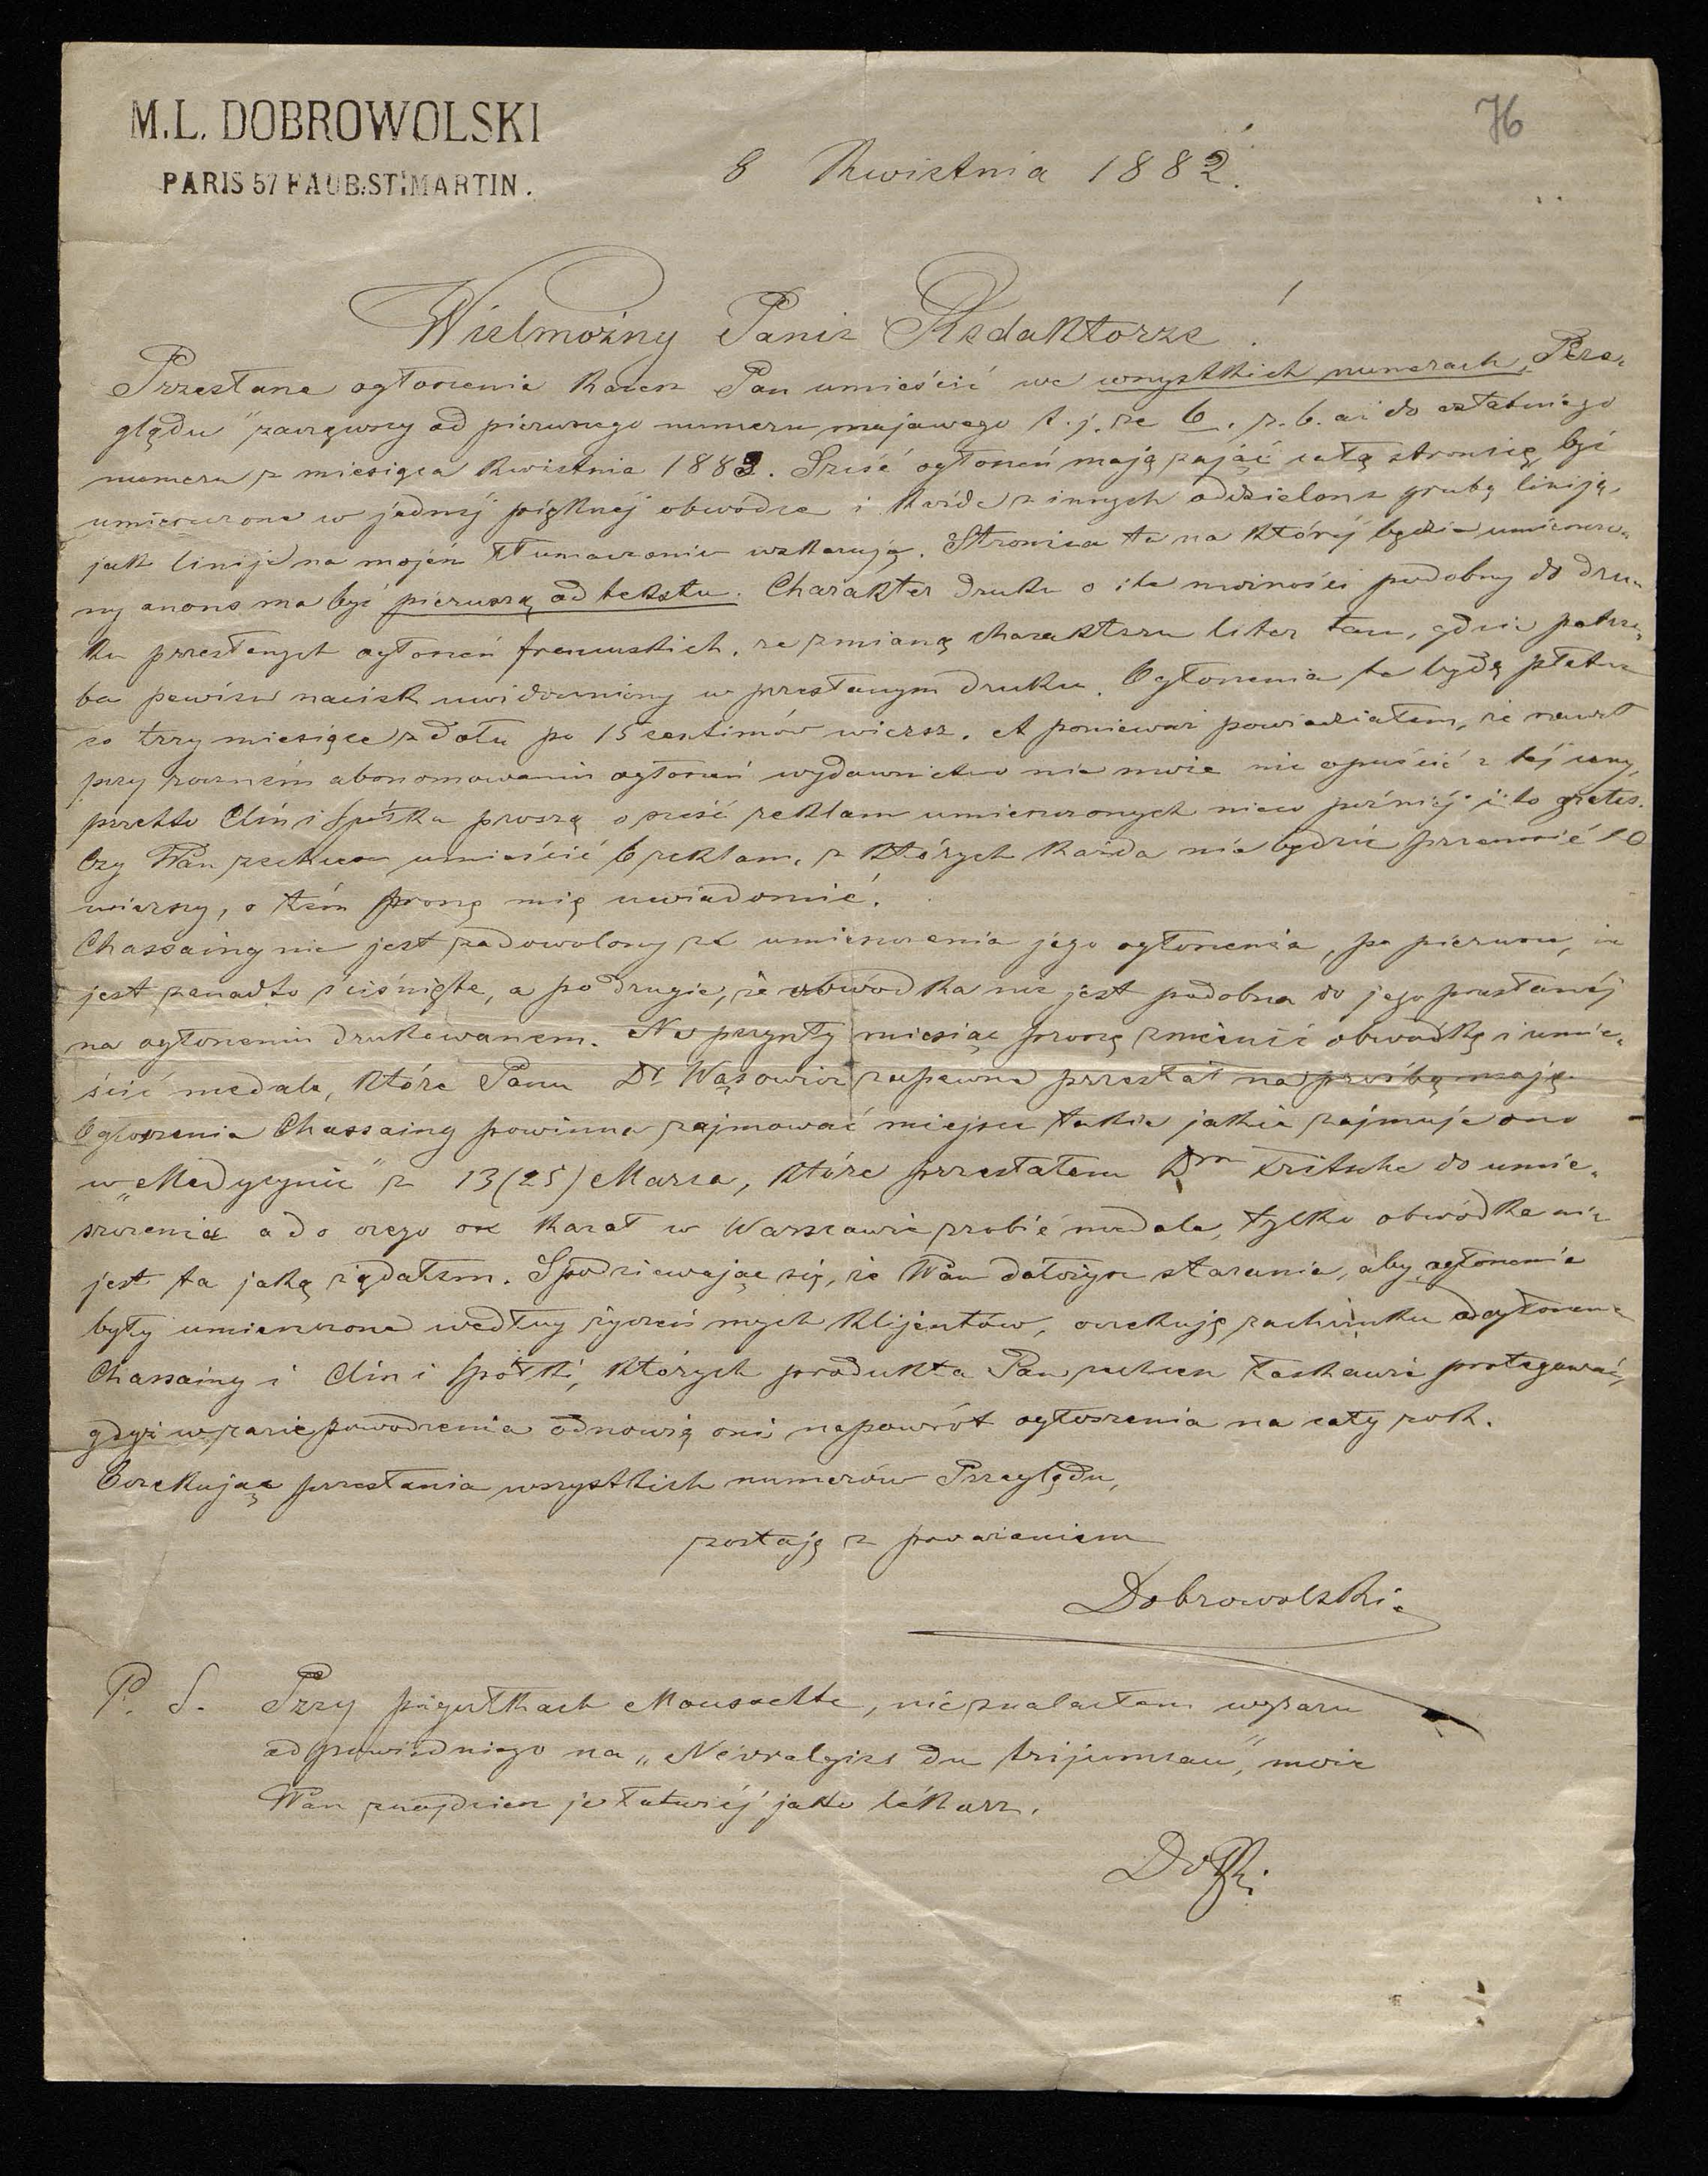 M.L. DOBROWOLSKI
PARIS 57 FAUB. ST. MARTIN.
76
8 Kwietnia 1882.
Wielmożny Panie Redaktorze!
Przesłane ogłoszenia każesz Pan umieścić we wszystkich numerach „Prze-
glądu" zacząwszy od pierwszego numeru majowego t. j. ze 6. z. b. aż do ostatniego
numeru z miesiąca kwietnia 1883. Sześć ogłoszeń mają zająć całą stronicę, być
umieszczone w jednéj pięknéj obwódce i każde z innych oddzielone grubą liniją,
jak linije na mojém tłumaczeniu wskazują. Stronica ta na któréj będzie umieszczo-
ny anons ma być pierwszą od tekstu. Charakter druku o ile możności podobny do dru-
ku przesłanych ogłoszeń francuskich, ze zmianą charakteru liter tam, gdzie potrze-
ba pewien nacisk uwidoczniony w przesłanym druku. Ogłoszenia te będą płatne
co trzy miesiące z dołu po 15 centimów wiersz. A ponieważ powiedziałem, że nawet
przy roczném abonowaniu ogłoszeń wydawnictwo nie może nic opuścić z téj ceny,
przeto Clin i Spółka proszą o sześć reklam umieszczonych nieco późniéj i to gratis.
Czy Pan zechcesz umieścić 6 reklam, z których każda nie będzie przenosić 10
wierszy, o tém proszę mię uwiadomić.
Chassaing nie jest zadowolony ze umieszczenia jego ogłoszenia, po pierwsze, że
jest zanadto ściśnięte, a po drugie, że obwódka nie jest podobna do jego przesłanéj
na ogłoszeniu drukowanem. Na przyszły miesiąc proszę zmienić obwódkę i umie-
ścić medale, które Panu Dr Wąsowicz zapewne przesłał na prośbę moję.
Ogłoszenie Chassaing powinno zajmować miejsce takie jakie zajmuje ono
w „Medycynie" z 13 (25) Marca, które przesłałem Drn Kritsche do umie-
szczenia a do czego on kazał w Warszawie zrobić medale, tylko obwódka nie
jest ta jaką żądałem. Spodziewając się, że Pan dołożysz starania, aby ogłoszenia
były umieszczone według życzeń mych klijentów, oczekuję rachunku od ogłoszeń
Chassaing i Clin i Spółki, których produkta Pan zechcesz łaskawie protegować,
gdyż w razie powodzenia odnowią oni napowrót ogłoszenia na cały rok.
Oczekując przesłania wszystkich numerów Przeglądu,
zostaję z poważaniem
Dobrowolski
P. S. Przy pigułkach Moussette, nie znalazłem wyrazu
odpowiedniego na „Névralgies du trijumeau", może
Pan znajdziesz je łatwiéj jako lékarz.
Dolski